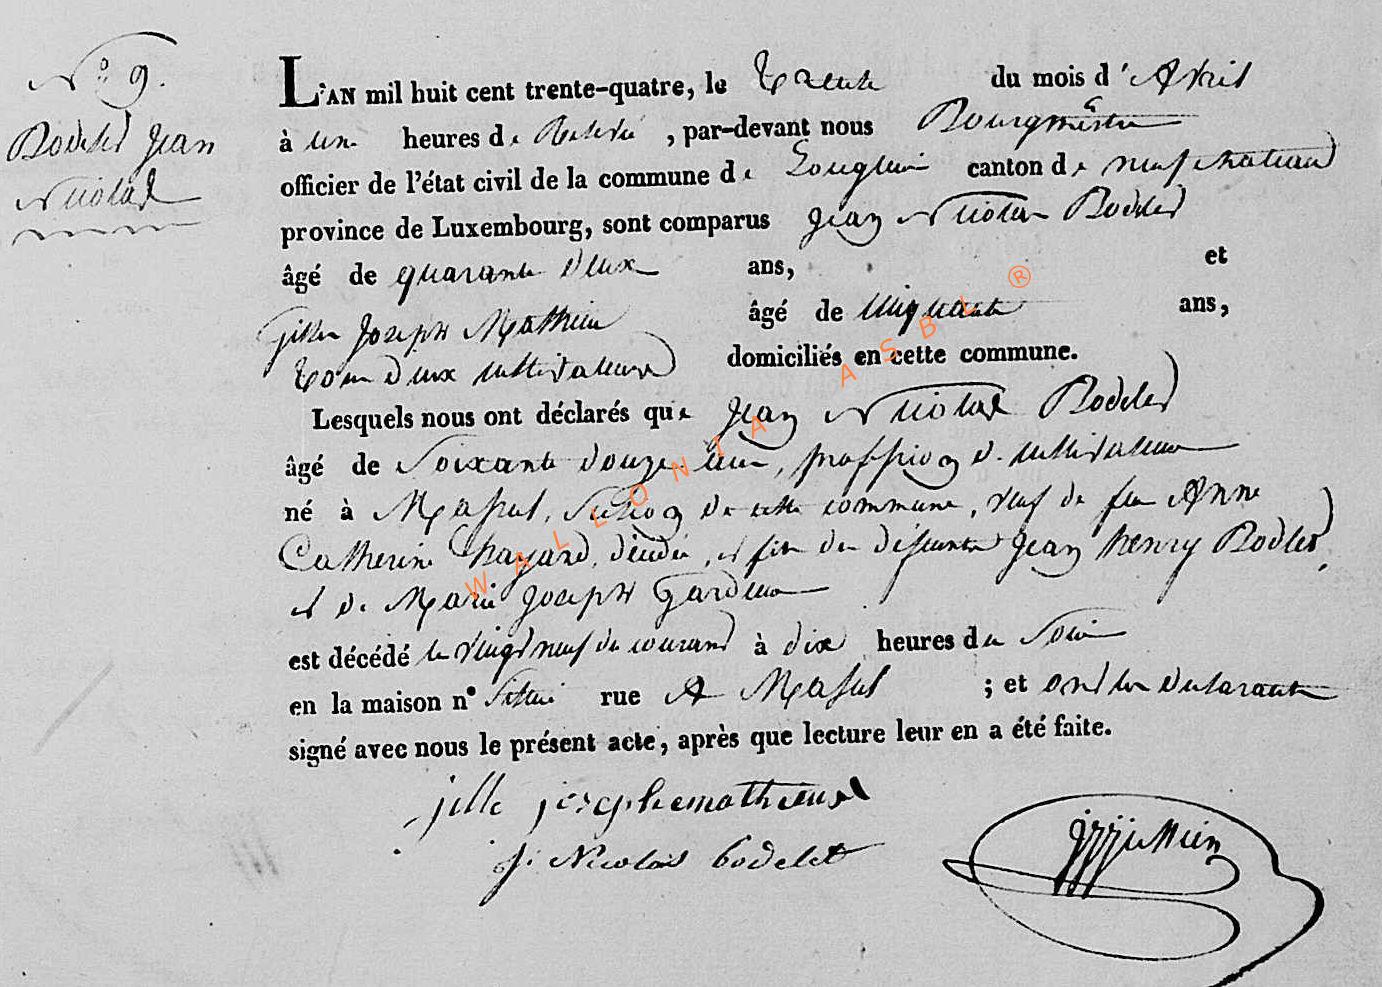 N° 9.
Bodelet Jean
Nicolas
L'AN mil huit cent trente-quatre, le Trente du mois d'Avril
à une heures de Relevé, par-devant nous Bourgmestre
officier de l'état civil de la commune de Longlier canton de neufchateau
province de Luxembourg, sont comparus Jean Nicolas Bodelet
âgé de quarante deux ans, et
Gille Joseph Mathieu âgé de cinquante ans,
Tous deux cultivateurs domiciliés en cette commune.
Lesquels nous ont déclarés que Jean Nicolas Bodelet
âgé de Soixante douze ans, proffession de cultivateur
né à Massul, Section de cette commune, veuf de feu Anne
Catherine décédée, et fils des défunts Jean henry Bodelet,
et de Marie Joseph Gardeur
est décédé le vingt neuf du courant à dix heures du Soir
en la maison n° rue A Massul ; et ont les déclarants
signé avec nous le présent acte, après que lecture leur en a été faite.
jille joseph mathieu
j. Nicolas bodelet
WALLONIA ASBL ®